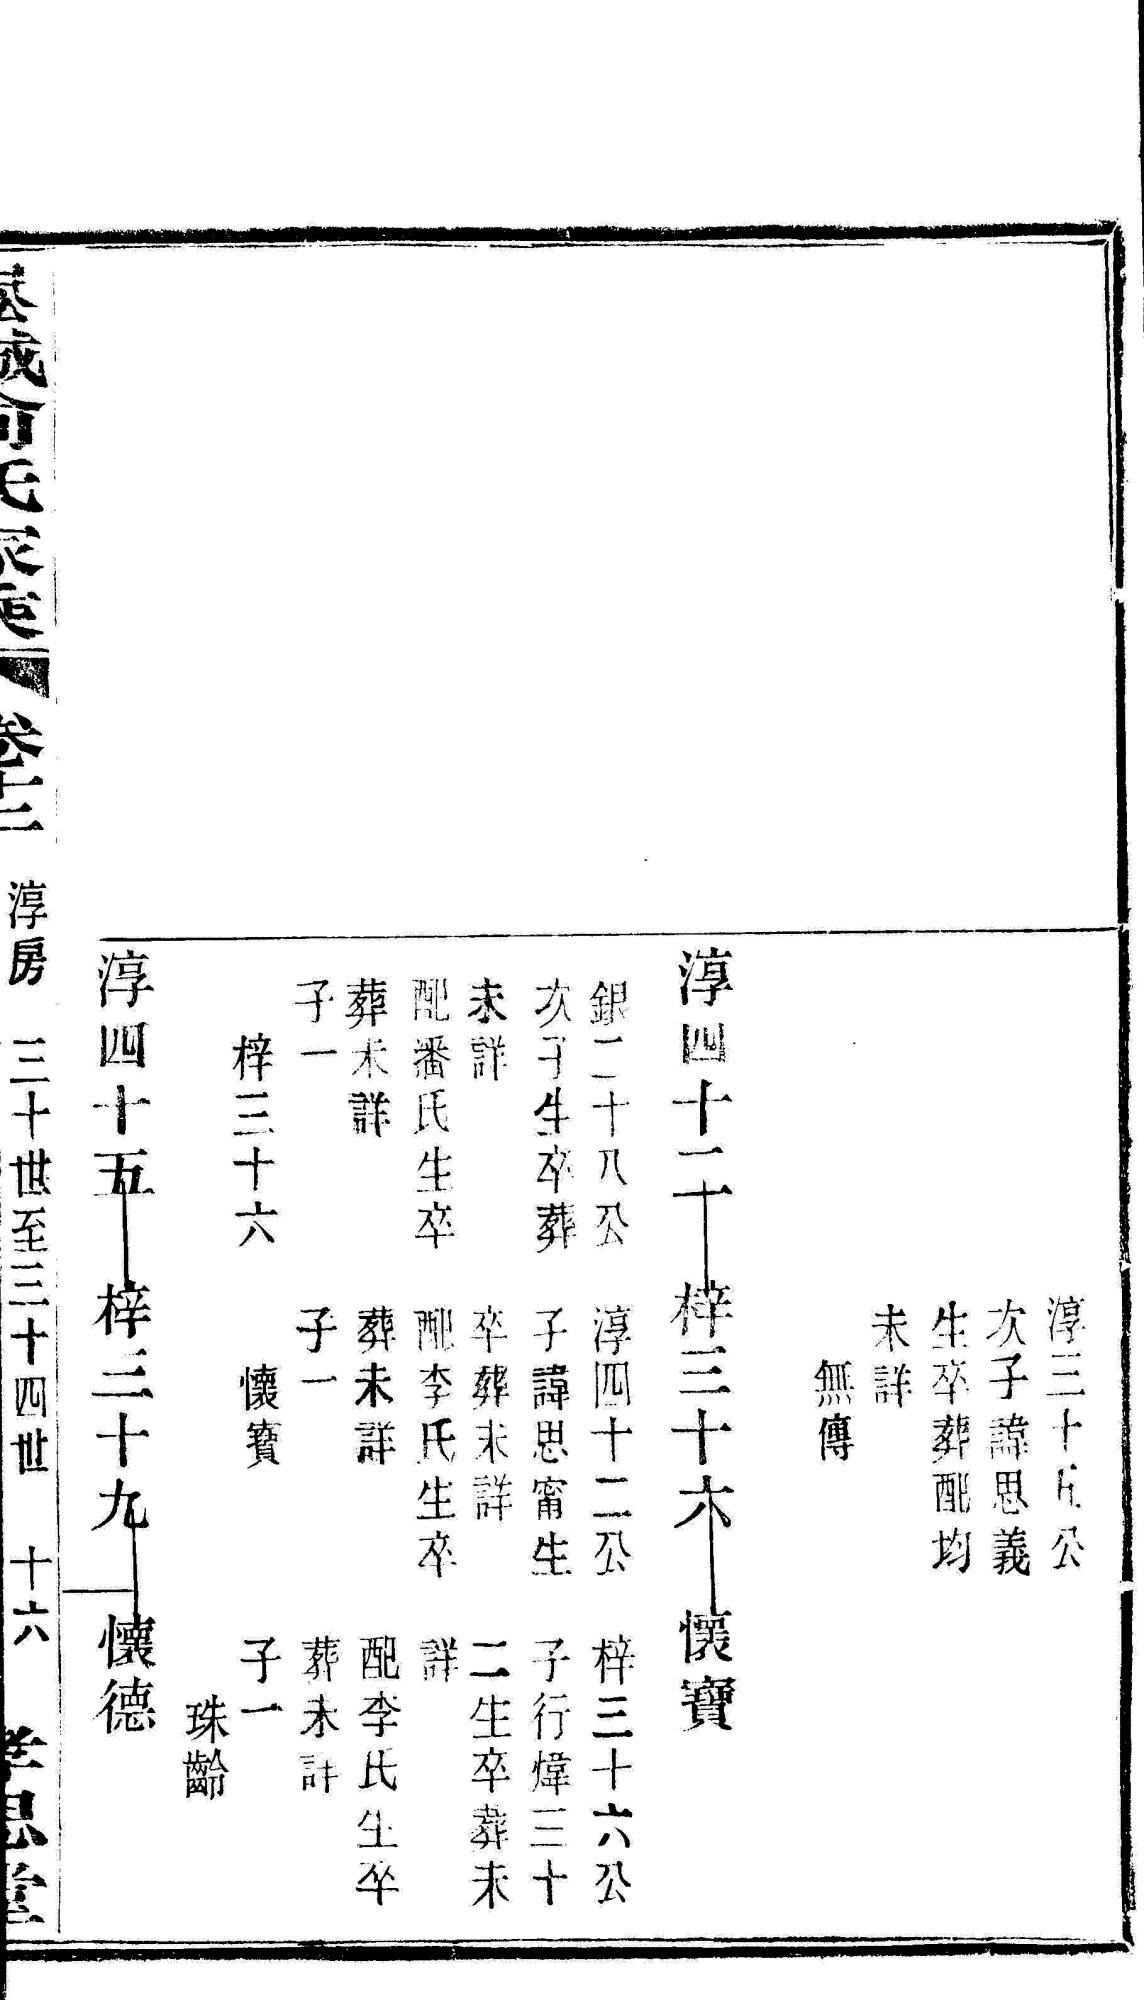 淳三十五公
次子諱思義
生卒葬配均
未詳
無傳
淳四十二 梓三十六 懷寶
銀二十八公
次子生卒葬
未詳
配潘氏生卒
葬未詳
子一
梓三十六
淳四十二公
子諱思甯生
卒葬未詳
配李氏生卒
葬未詳
子一
懷寶
梓三十六公
子行煒三十
二生卒葬未
詳
配李氏生卒
葬未詳
子一
珠齡
淳四十五 梓三十九 懷德
氏家 卷十二 淳房 三十世至三十四世 十六 孝思堂